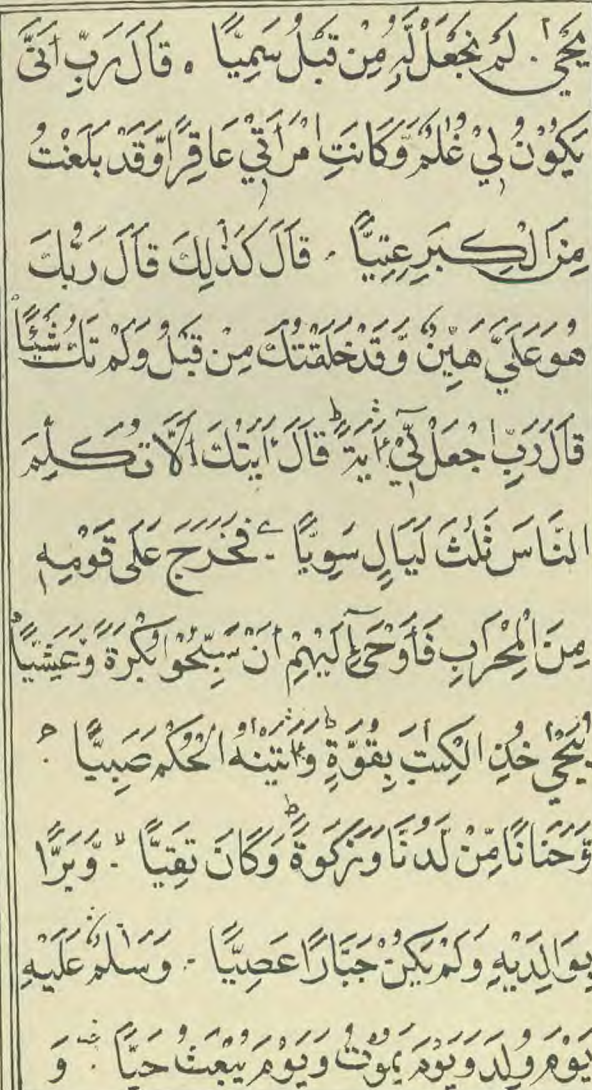 يَحْيٰى لَمْ نَجْعَلْ لَّهٗ مِنْ قَبْلُ سَمِيًّا ۝ قَالَ رَبِّ اَنّٰى
يَكُوْنُ لِيْ غُلٰمٌ وَّكَانَتِ امْرَاَتِيْ عَاقِرًا وَّقَدْ بَلَغْتُ
مِنَ الْكِبَرِ عِتِيًّا ۝ قَالَ كَذٰلِكَ قَالَ رَبُّكَ
هُوَ عَلَيَّ هَيِّنٌ وَّقَدْ خَلَقْتُكَ مِنْ قَبْلُ وَلَمْ تَكُ شَيْئًا
قَالَ رَبِّ اجْعَلْ لِّيْٓ اٰيَةً ؕ قَالَ اٰيَتُكَ اَلَّا تُكَلِّمَ
النَّاسَ ثَلٰثَ لَيَالٍ سَوِيًّا ۝ فَخَرَجَ عَلٰى قَوْمِهٖ
مِنَ الْمِحْرَابِ فَاَوْحٰٓى اِلَيْهِمْ اَنْ سَبِّحُوْا بُكْرَةً وَّعَشِيًّا
يٰيَحْيٰى خُذِ الْكِتٰبَ بِقُوَّةٍ ؕ وَاٰتَيْنٰهُ الْحُكْمَ صَبِيًّا ۝
وَّحَنَانًا مِّنْ لَّدُنَّا وَزَكٰوةً ؕ وَكَانَ تَقِيًّا ۝ وَّبَرًّا
بِوَالِدَيْهِ وَلَمْ يَكُنْ جَبَّارًا عَصِيًّا ۝ وَسَلٰمٌ عَلَيْهِ
يَوْمَ وُلِدَ وَيَوْمَ يَمُوْتُ وَيَوْمَ يُبْعَثُ حَيًّا ۝ وَ